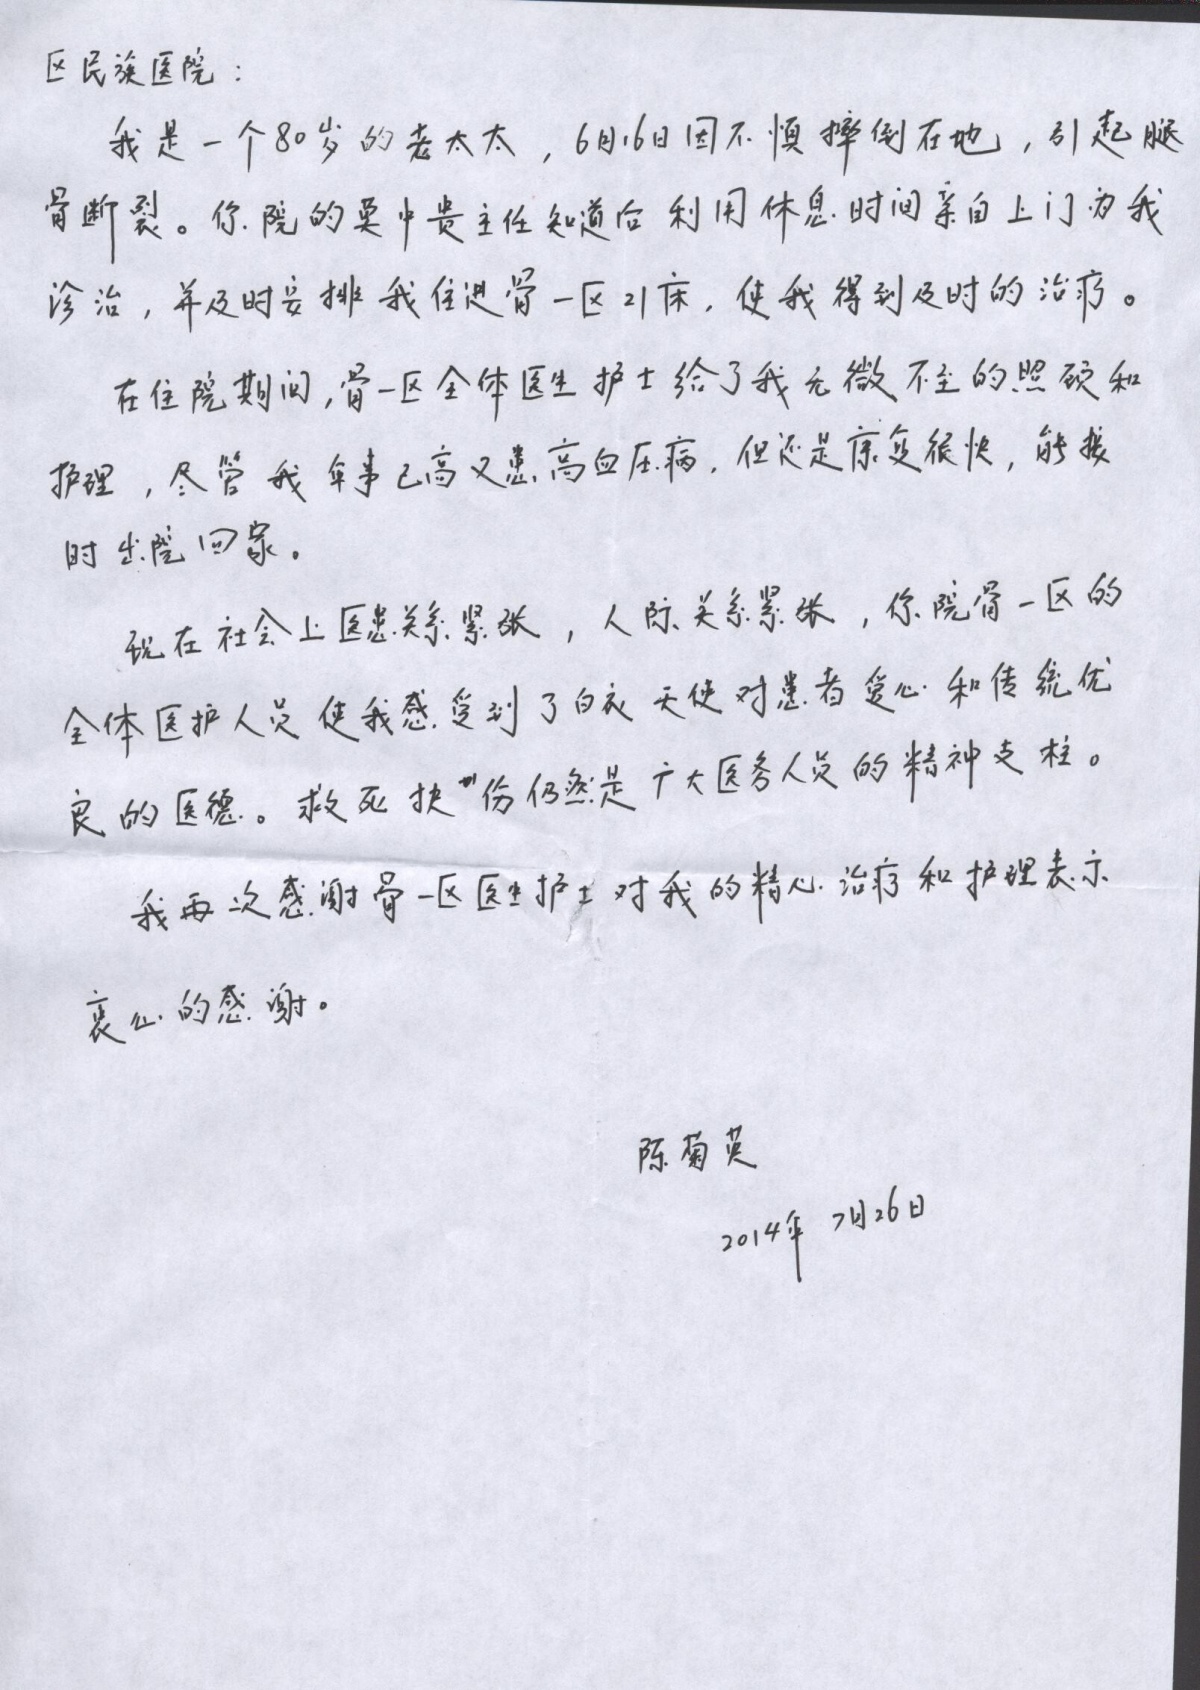 区民族医院：
我是一个80岁的老太太，6月16日因不慎摔倒在地，引起腿
骨断裂。你院的莫中贵主任知道后利用休息时间亲自上门为我
诊治，并及时安排我住进骨一区21床，使我得到及时的治疗。
在住院期间，骨一区全体医生护士给了我无微不至的照顾和
护理，尽管我年事已高又患高血压病，但还是康复很快，能按
时出院回家。
现在社会上医患关系紧张，人际关系紧张，你院骨一区的
全体医护人员使我感受到了白衣天使对患者爱心和传统优
良的医德。救死扶伤仍然是广大医务人员的精神支柱。
我再次感谢骨一区医生护士对我的精心治疗和护理表示
衷心的感谢。
陈菊英
2014年7月26日